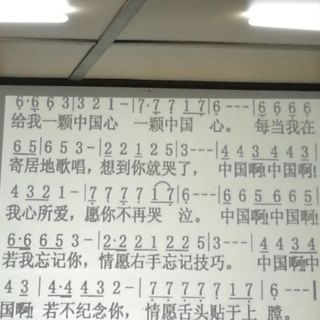 6·6 6 3 | 3 2 1 - | 7·7 7 1 7 | 6 - - - | 6 6 6 6
给我一颗中国心 一颗中国 心。 每当我在
6 5 | 6 5 3 - | 2 2 1 2 5 | 3 - - - | 4 4 3 4 4 3 |
寄居地歌唱，想到你就哭了， 中国啊!中国啊!
4 3 2 1 - | 7 7 7 7 1 7 | 6 - - - | 6 6 5 6 6 5 |
我心所爱，愿你不再哭 泣。 中国啊!中国啊!
6·6 6 5 3 - | 2·2 2 1 2 2 5 | 3 - - - | 4 4 3 4
若我忘记你，情愿右手忘记技巧。 中国啊!中
4 3 | 4·4 4 3 2 - | 7 7 7 7 7 1 7 | 6 - - - |
国啊! 若不纪念你，情愿舌头贴于上 膛。